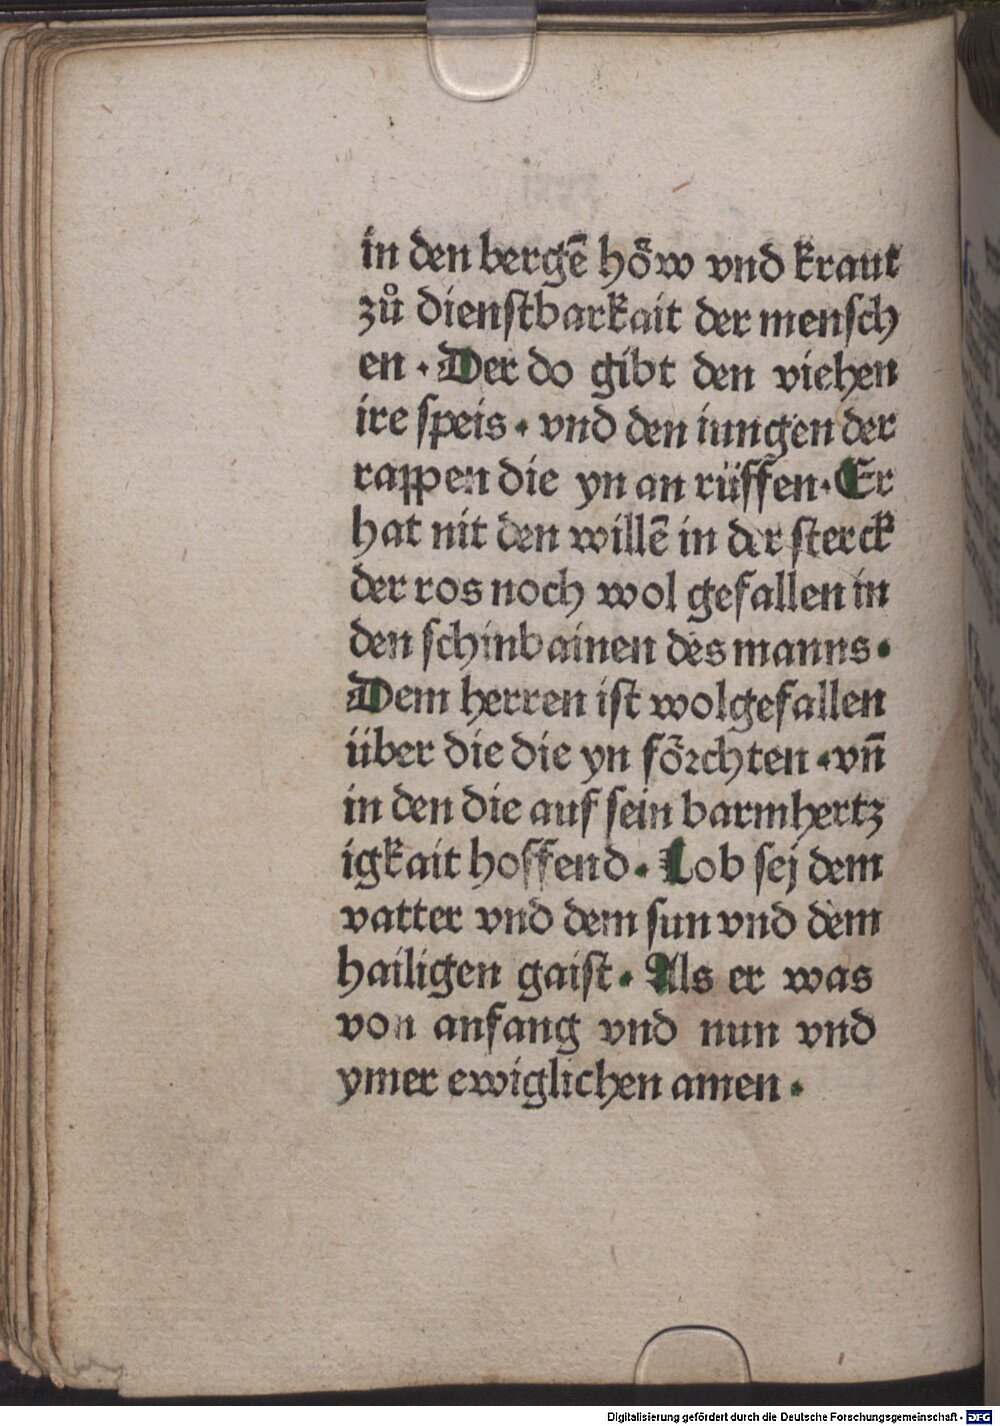 in den bergē hoͤw vnd kraut
zů dienſtbarkait der menſch
en · Der do gibt den viehen
ire ſpeis · vnd den iungen der
rappen die yn an rüffen · Er
hat nit den willē in der ſterck
der ros noch wol gefallen in
den ſchinbainen des manns ·
Dem herren iſt wolgefallen
über die die yn foͤꝛchten · vn̄
in den die auf ſein barmhertz
igkait hoffend · Lob ſej dem
vatter vnd dem ſun vnd dem
hailigen gaiſt · Als er was
von anfang vnd nun vnd
ymer ewiglichen amen ·
Digitalisierung gefördert durch die Deutsche Forschungsgemeinschaft - DFG